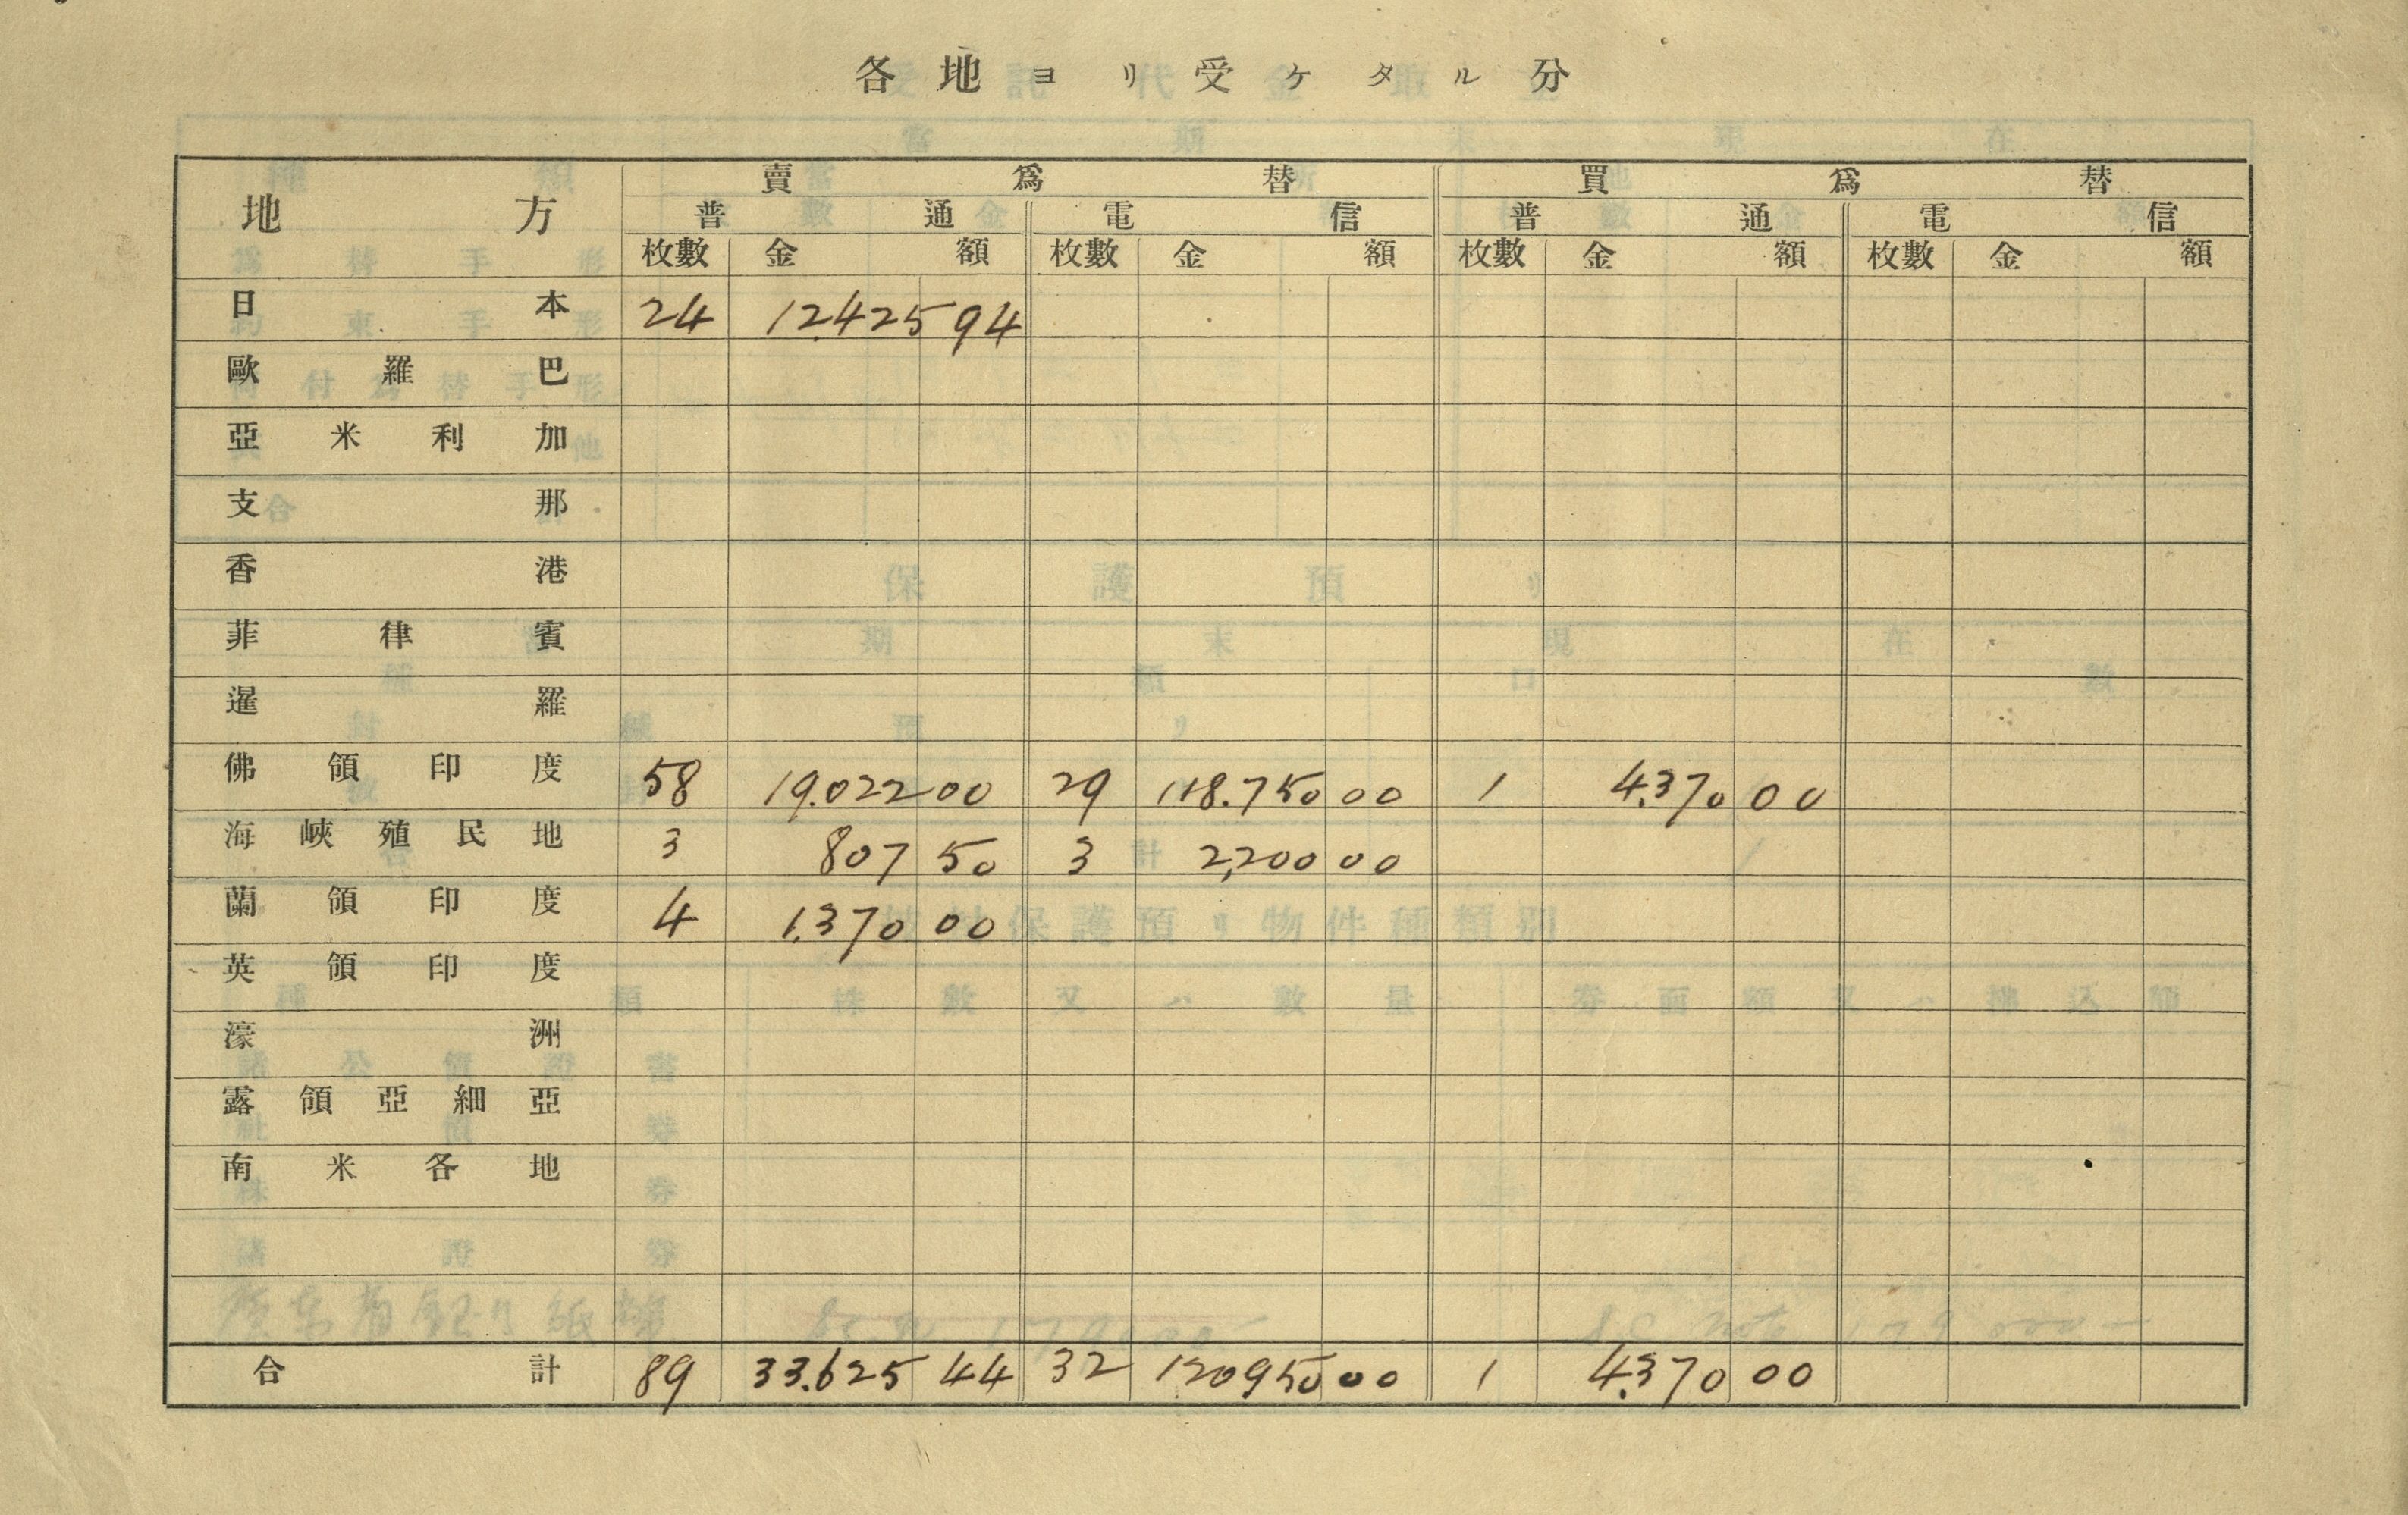 各地ヨリ受ケタル分
地方 賣爲替 買爲替
普通 電信 普通 電信
枚數 金額 枚數 金額 枚數 金額 枚數 金額
日本 24 12.425 94
歐羅巴
亞米利加
支那
香港
菲律賓
暹羅
佛領印度 58 19.022 00 29 118.750 00 1 4.370 00
海峽殖民地 3 807 50 3 2,200 00
蘭領印度 4 1.370 00
英領印度
濠洲
露領亞細亞
南米各地
合計 89 33.625 44 32 120950 00 1 4.370 00